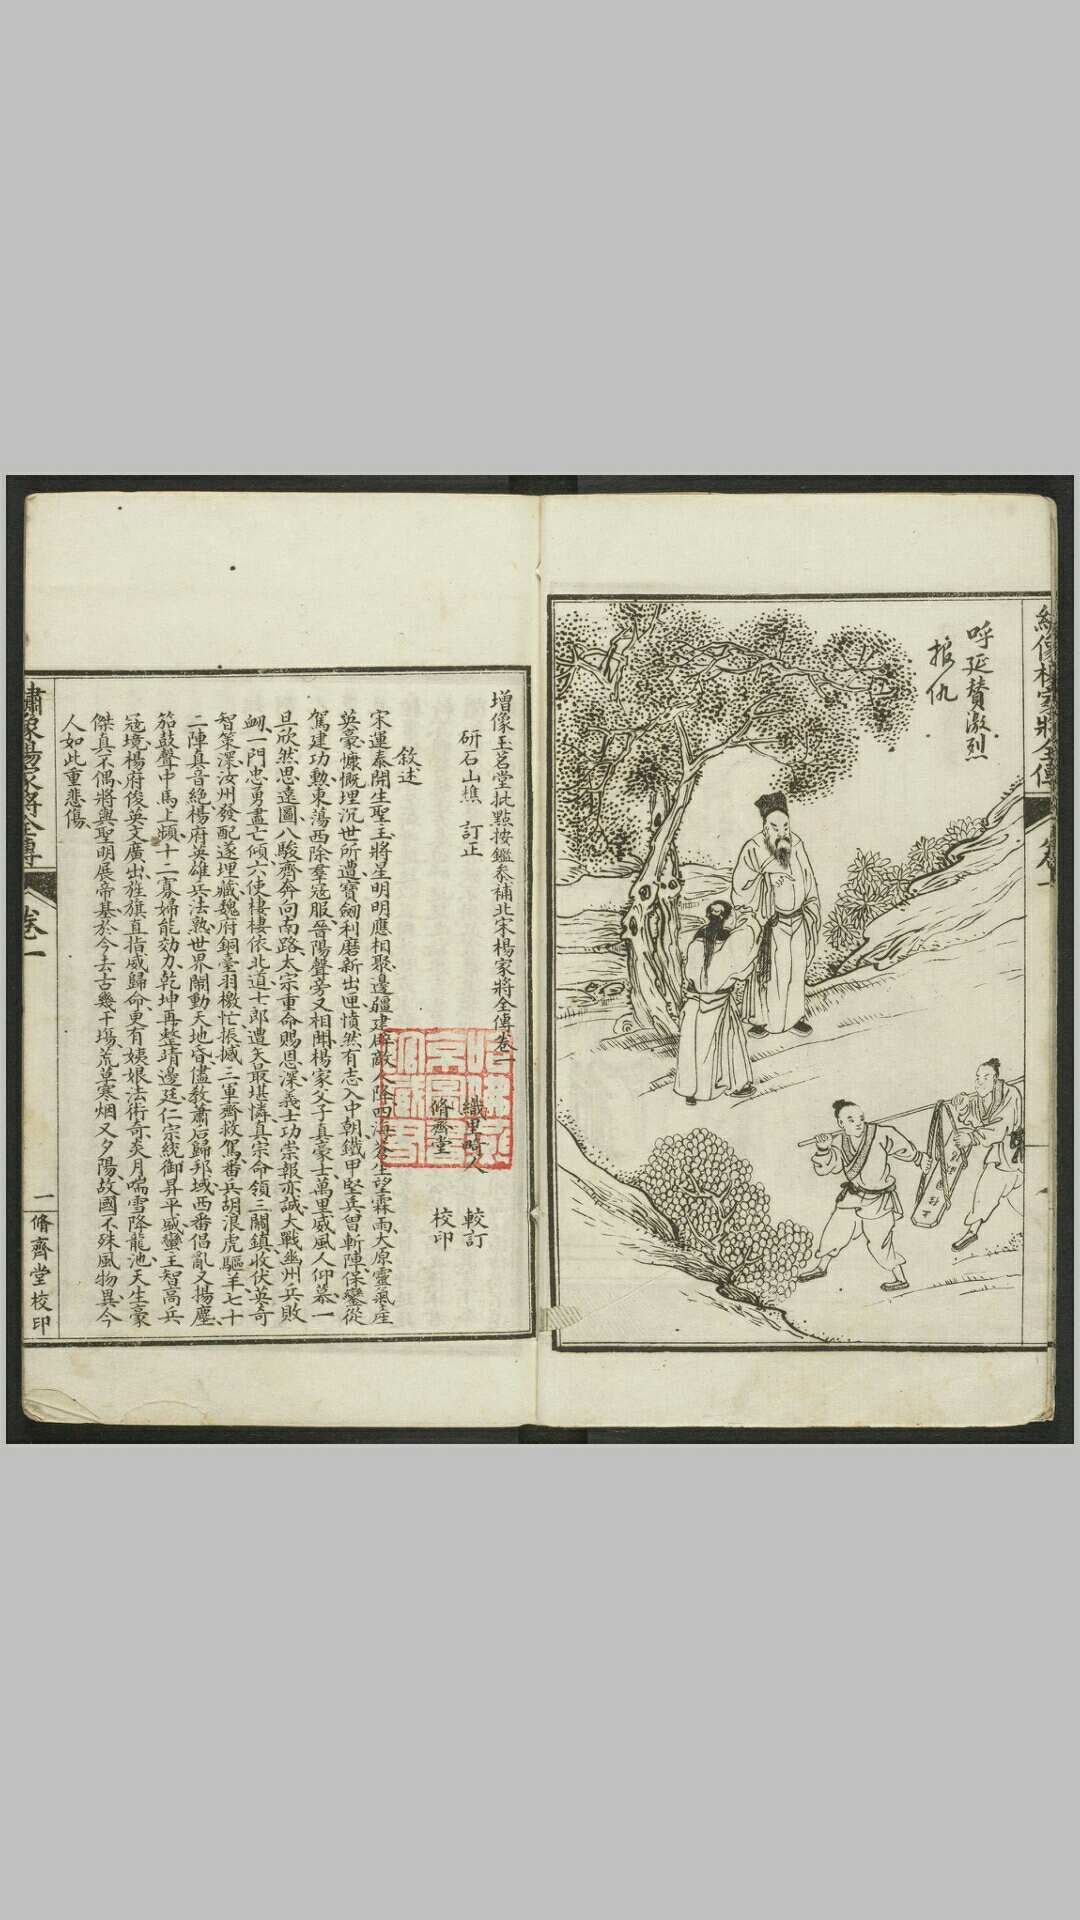 呼延贊激烈
报仇
卷一
增像玉茗堂批點按鑑叅補北宋楊家將全傳卷一
研石山樵 訂正
織里畸人 較訂
脩齊堂 校印
敘述
宋運泰開生聖主將星明明應相聚邊疆建辟敵人降四海蒼生望霖雨大原靈氣產
英豪慷慨埋沉世所遭寶劒利磨新出匣憤然有志入中朝鐵甲堅兵曾斬陣保鑾從
駕建功勳東蕩西除羣寇服晉陽聲旁又相聞楊家父子真豪士萬里威風人仰慕一
旦欣然思遠圖八駿齊奔向南路太宗重命賜恩深義士功崇報亦誠大戰幽州兵敗
衂一門忠勇盡亡傾六使棲棲依北道七郎遭矢最堪憐真宗命領三關鎮收伏英奇
智策深汝州發配遂埋藏魏府銅臺羽檄忙振撼三軍齊救駕番兵胡浪虎驅羊七十
二陣真音絕楊府英雄兵法熟世界鬧動天地昏儘教蕭后歸邦域西番倡亂又揚塵
笳鼓聲中馬上頻十二寡婦能効力乾坤再整靖邊廷仁宗統御昇平盛蠻王智高兵
寇境楊府俊英文廣出旌旗直指威歸命更有姨娘法術奇炎月喘雪降龍池天生豪
傑真不偶將與聖明展帝基於今去古幾千塲荒草寒烟又夕陽故國不殊風物異今
人如此重悲傷
繡像楊家將全傳
卷一
一
脩齊堂校印